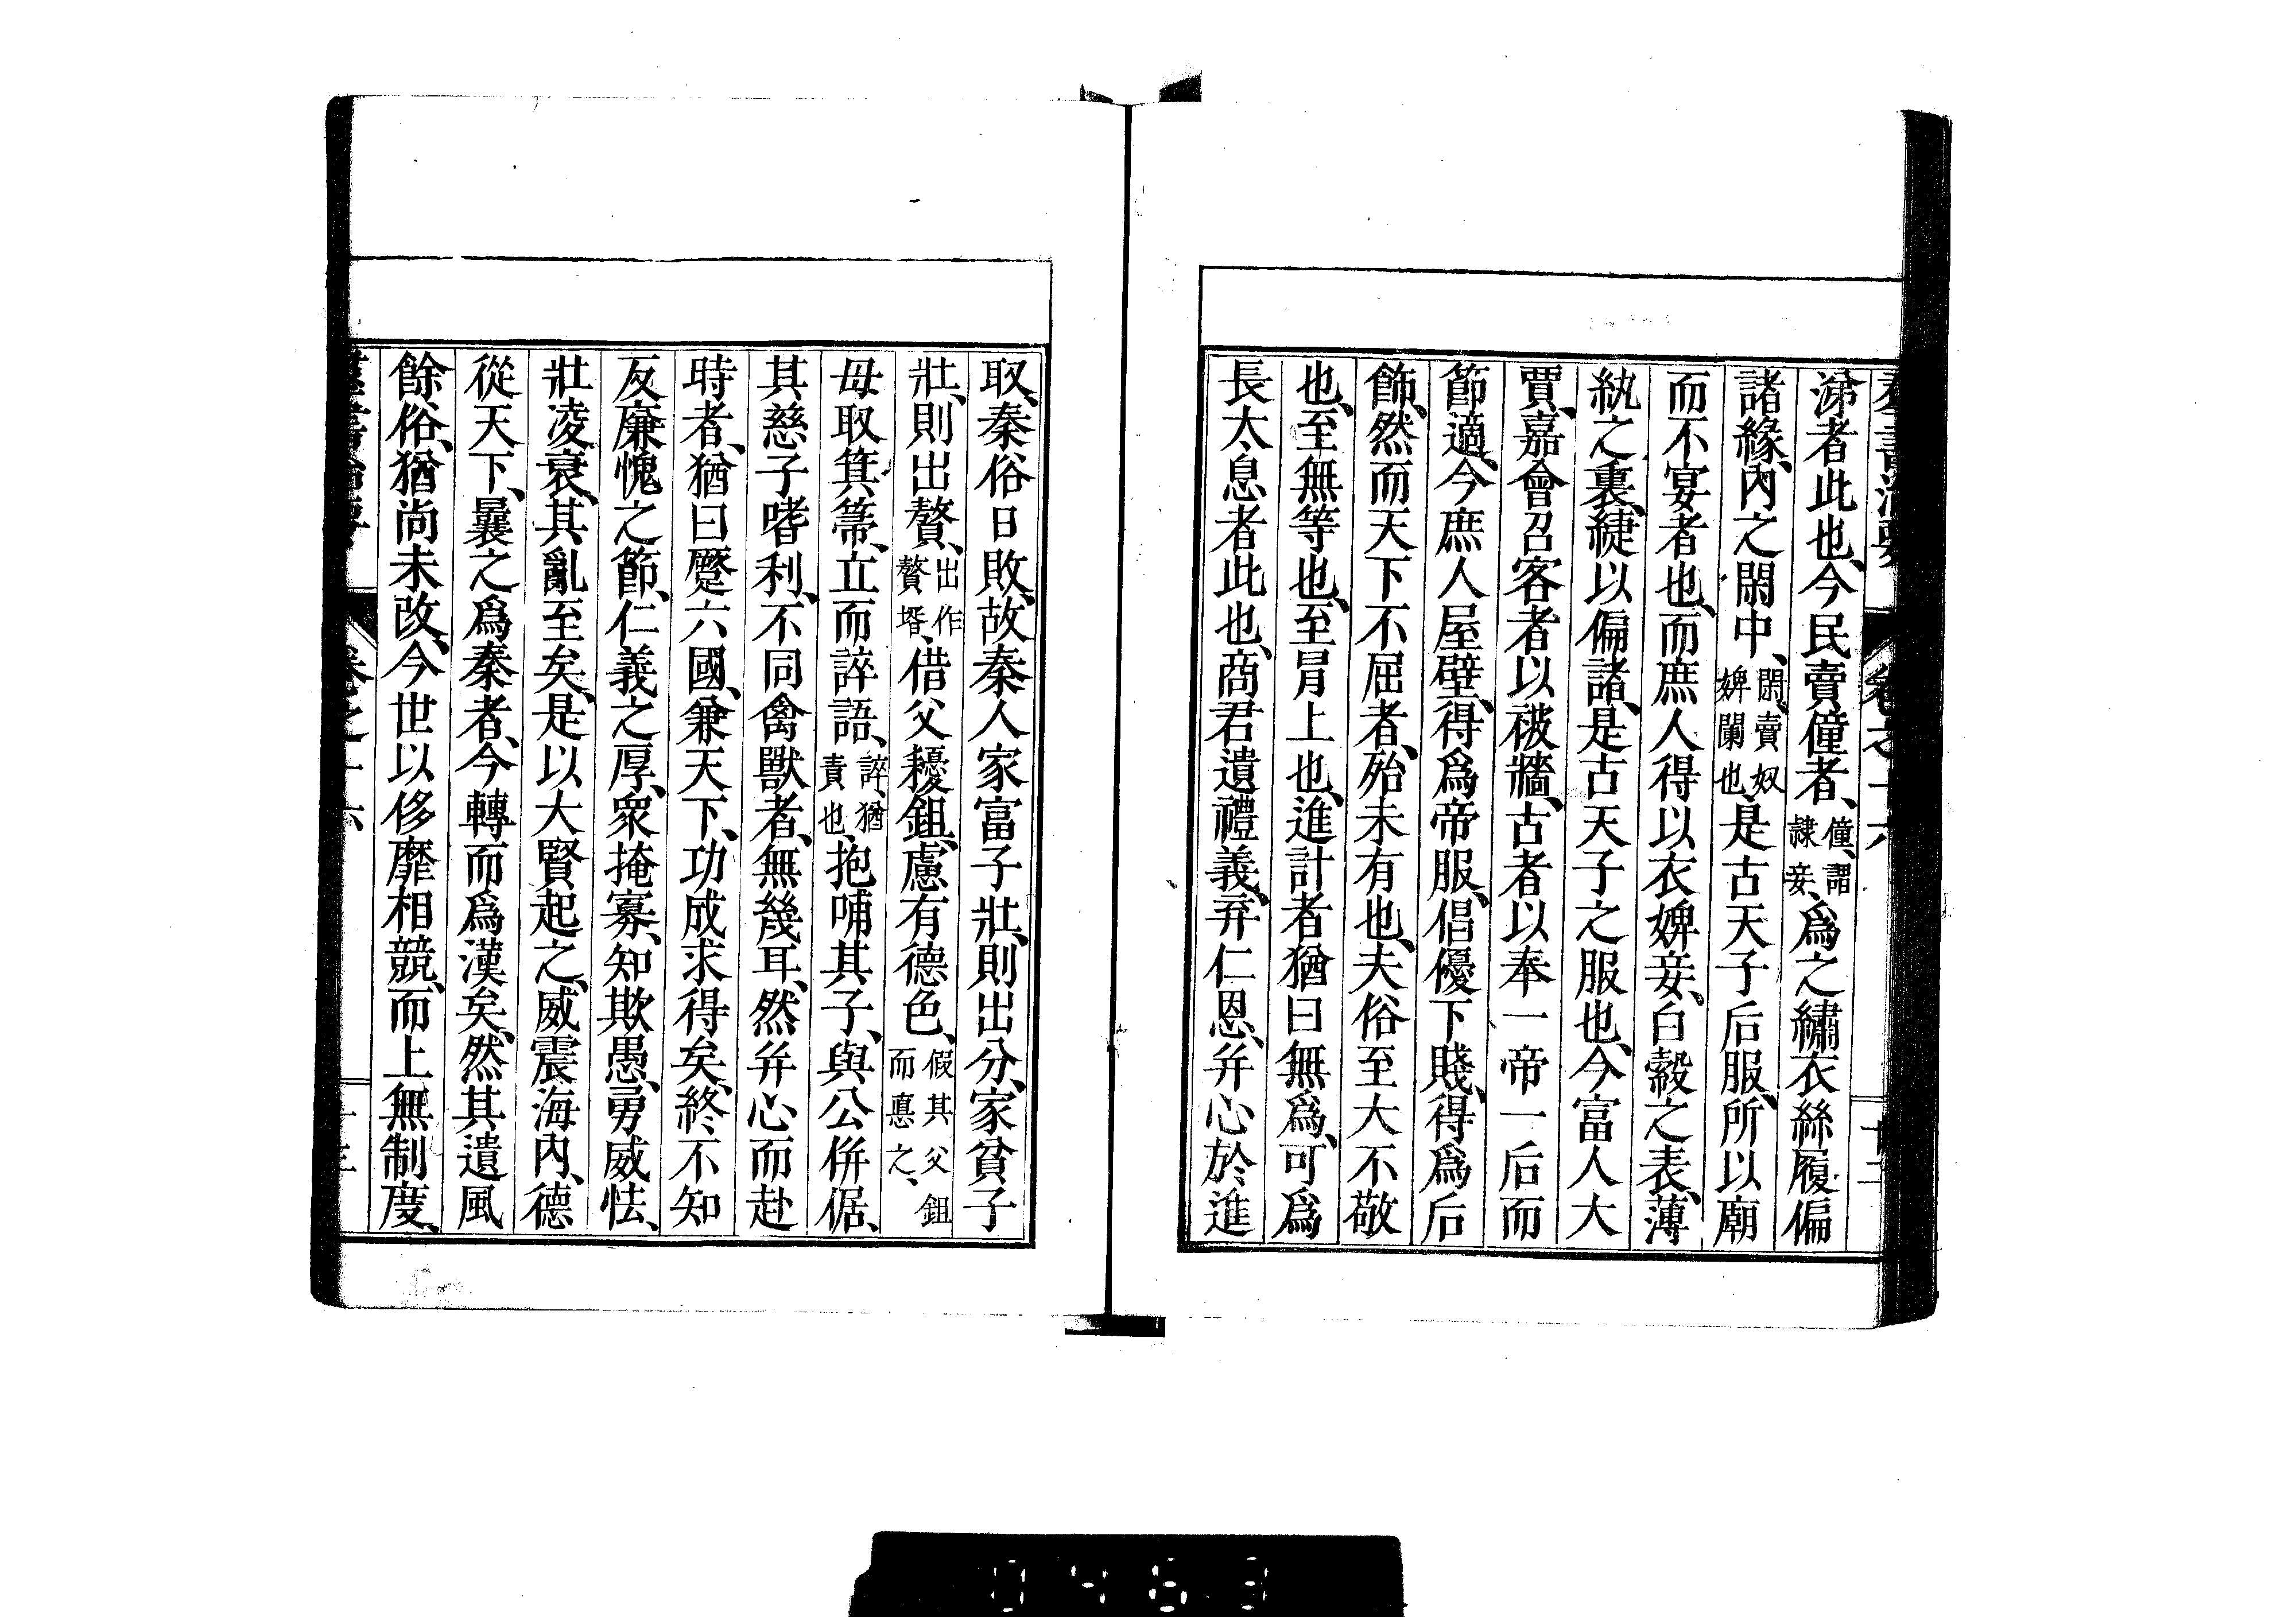 群書治要 卷之十六
涕者此也、今民賣僮者、僮、謂隷妾、爲之繡衣絲履偏
諸緣、內之閑中、閑、賣奴婢闌也、是古天子后服、所以廟
而不宴者也、而庶人得以衣婢妾、白縠之表、薄
紈之裏、緁以偏諸、是古天子之服也、今富人大
賈、嘉會召客者以被牆、古者以奉一帝一后而
節適、今庶人屋壁、得爲帝服、倡優下賤、得爲后
飾、然而天下不屈者、殆未有也、夫俗至大不敬
也、至無等也、至冐上也、進計者猶曰無爲、可爲
長大息者此也、商君遺禮義、弃仁恩、幷心於進
取、秦俗日敗、故秦人家富子壯、則出分、家貧子
壯、則出贅、出作贅壻、借父耰鉏、慮有德色、假其父鉏而悳之、
毋取箕箒、立而誶語、誶、猶責也、抱哺其子、與公倂倨、
其慈子嗜利、不同禽獸者、無幾耳、然幷心而赴
時者、猶曰蹷六國、兼天下、功成求得矣、終不知
反廉愧之節、仁義之厚、衆掩寡、知欺愚、勇威怯、
壯凌衰、其亂至矣、是以大賢起之、威震海內、德
從天下、曩之爲秦者、今轉而爲漢矣、然其遺風
餘俗、猶尚未改、今世以侈靡相競、而上無制度、
群書治要 卷之十六
0463